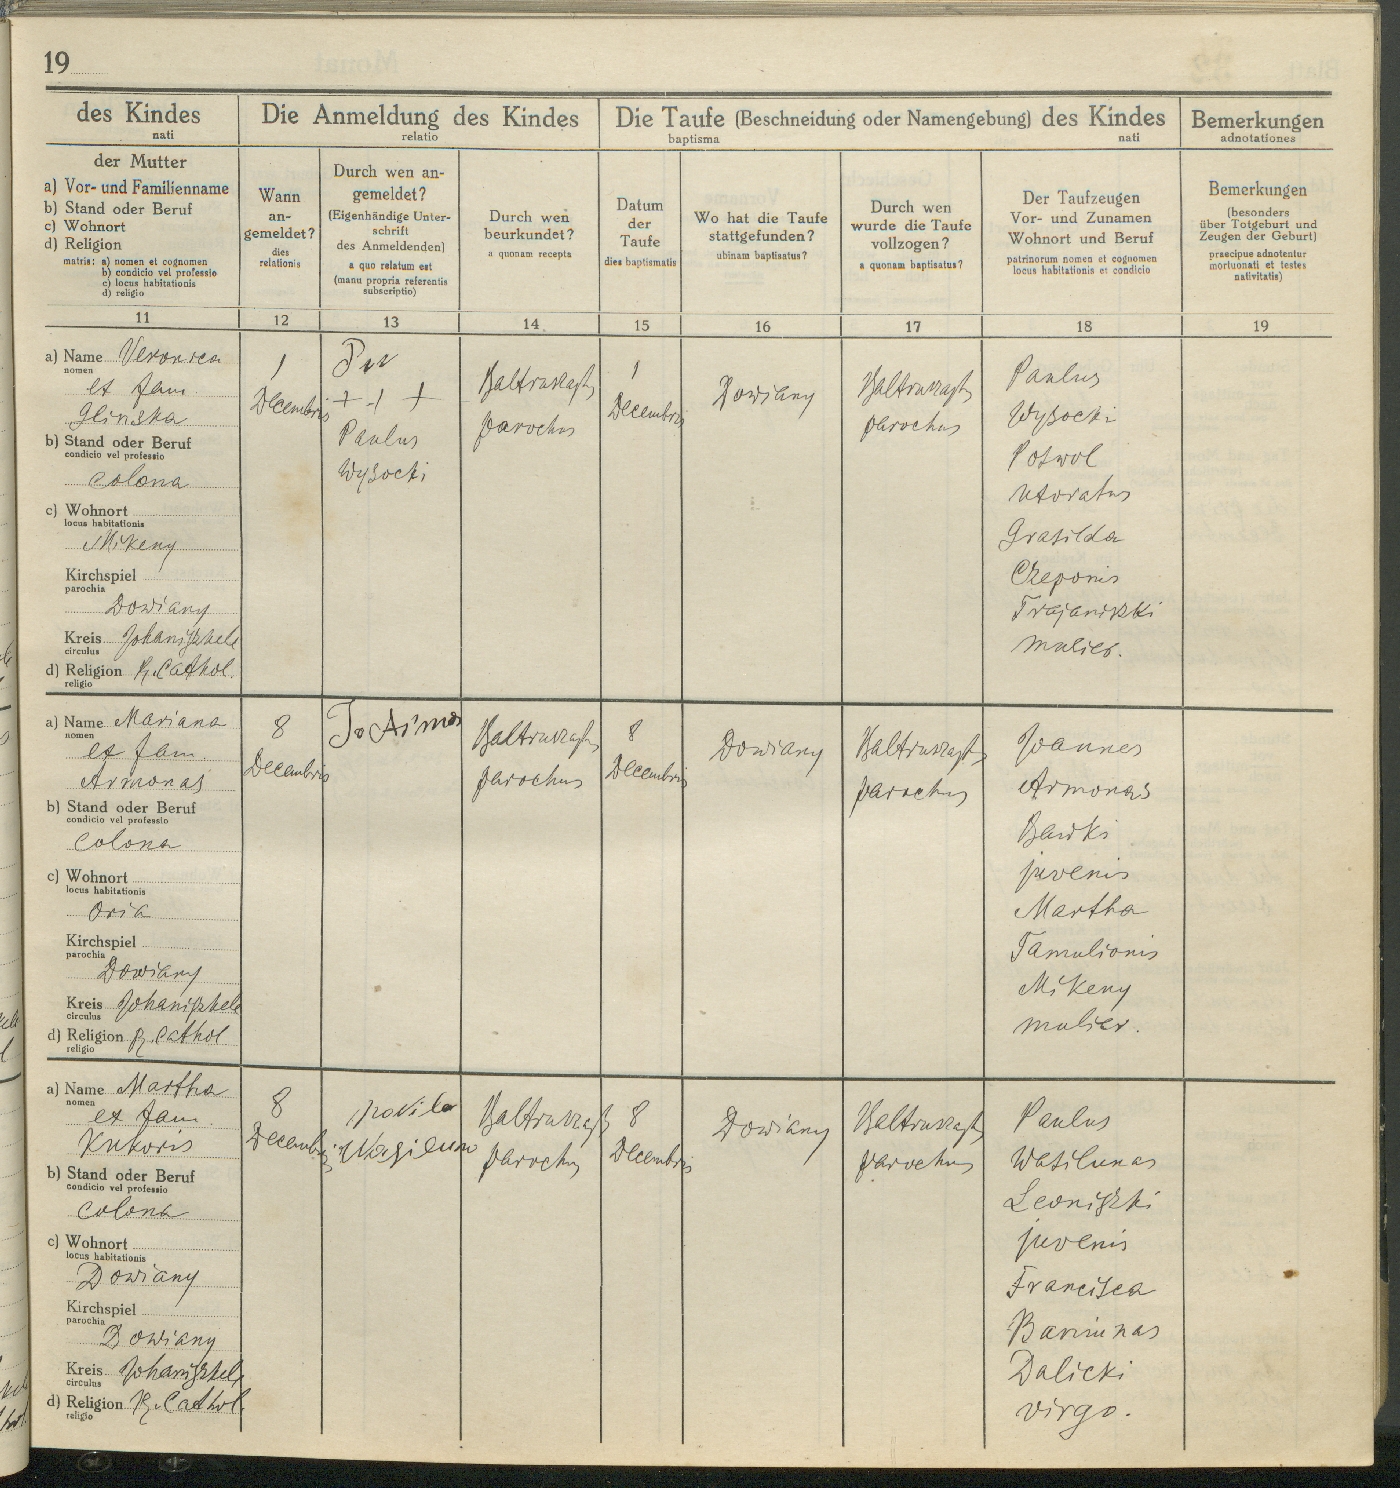 19
des Kindes
nati
Die Anmeldung des Kindes
relatio
Die Taufe (Beschneidung oder Namengebung) des Kindes
baptisma nati
Bemerkungen
adnotationes
der Mutter
a) Vor- und Familienname
b) Stand oder Beruf
c) Wohnort
d) Religion
matris: a) nomen et cognomen
b) condicio vel professio
c) locus habitationis
d) religio
Wann
an-
gemeldet?
dies
relationis
Durch wen an-
gemeldet?
(Eigenhändige Unter-
schrift
des Anmeldenden)
a quo relatum est
(manu propria referentis
subscriptio)
Durch wen
beurkundet?
a quonam recepta
Datum
der
Taufe
dies baptismatis
Wo hat die Taufe
stattgefunden?
ubinam baptisatus?
Durch wen
wurde die Taufe
vollzogen?
a quonam baptisatus?
Der Taufzeugen
Vor- und Zunamen
Wohnort und Beruf
patrinorum nomen et cognomen
locus habitationis et condicio
Bemerkungen
(besonders
über Totgeburt und
Zeugen der Geburt)
praecipue adnotentur
mortuonati et testes
nativitatis)
11 12 13 14 15 16 17 18 19
a) Name Veronica
nomen
et fam.
Glinska
b) Stand oder Beruf
condicio vel professio
colona
c) Wohnort
locus habitationis
Mikeny
Kirchspiel
parochia
Dowiany
Kreis Johaniszkele
circulus
d) Religion R. Cathol.
religio
1
Decembris
+ + +
Paulus
Wysocki
Baltruszajtis
parochus
1
Decembris
Dowiany
Baltruszajtis
parochus
Paulus
Wysocki
Poswol
Grasilda
Czeponis
Trajaniszki
mulier.
a) Name Mariana
nomen
et fam.
Armonas
b) Stand oder Beruf
condicio vel professio
colona
c) Wohnort
locus habitationis
Oria
Kirchspiel
parochia
Dowiany
Kreis Johaniszkele
circulus
d) Religion R. Cathol
religio
8
Decembris
Baltruszajtis
parochus
8
Decembris
Dowiany
Baltruszajtis
parochus
Joannes
Armonas
juvenis
Martha
Tamulionis
Mikeny
mulier.
a) Name Martha
nomen
et fam.
Kukoris
b) Stand oder Beruf
condicio vel professio
colona
c) Wohnort
locus habitationis
Dowiany
Kirchspiel
parochia
Dowiany
Kreis Johaniszkele
circulus
d) Religion R. Cathol.
religio
8
Decembris
Baltruszajtis
parochus
8
Decembris
Dowiany
Baltruszajtis
parochus
Paulus
Wasilunas
Leoniszki
juvenis
Francisca
Barunas
Dalicki
virgo.